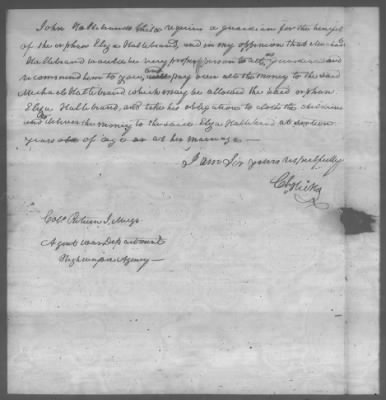 John Haltebrands Child requires a guardian for the benefit
of the orphan Eliza Haltebrand, and in my opinion that Michael
Haltebrand would be very proper person to act as Guardian and
recommend him to you, and pay over all the money to the said
Michael Haltebrand which may be allowed the said orphan
Eliza Haltebrand, and take his obligation to cloth the
and deliver the money to the said Eliza Haltebrand at sixteen
years of age or at her marriage —
I am Sir yours respectfully
Hicks
Colo. Return J. Meigs
Agent War Department
Highwassee Agency —